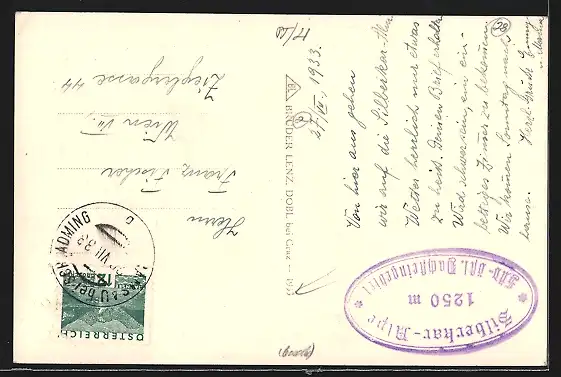 27/VII. 1933.
Von hier aus gehen
wir auf die Silberkar-Alm
Wetter herrlich nur etwas
zu heiß. Deinen Brief erhalten
Wird schwer sein, ein ein-
bettiges Zimmer zu bekommen
Wir kommen Sonntag nach
hause. Herzl. Grüße
BRÜDER LENZ, DOBL bei Graz — 1933
RAMSAU BEI SCHLADMING
VII 33
12
ÖSTERREICH
Herrn
Franz Fischer
Wien VII
Zieglergasse 44
Silberkar-Alpe
1250 m
Süd-öst. Dachsteingebiet